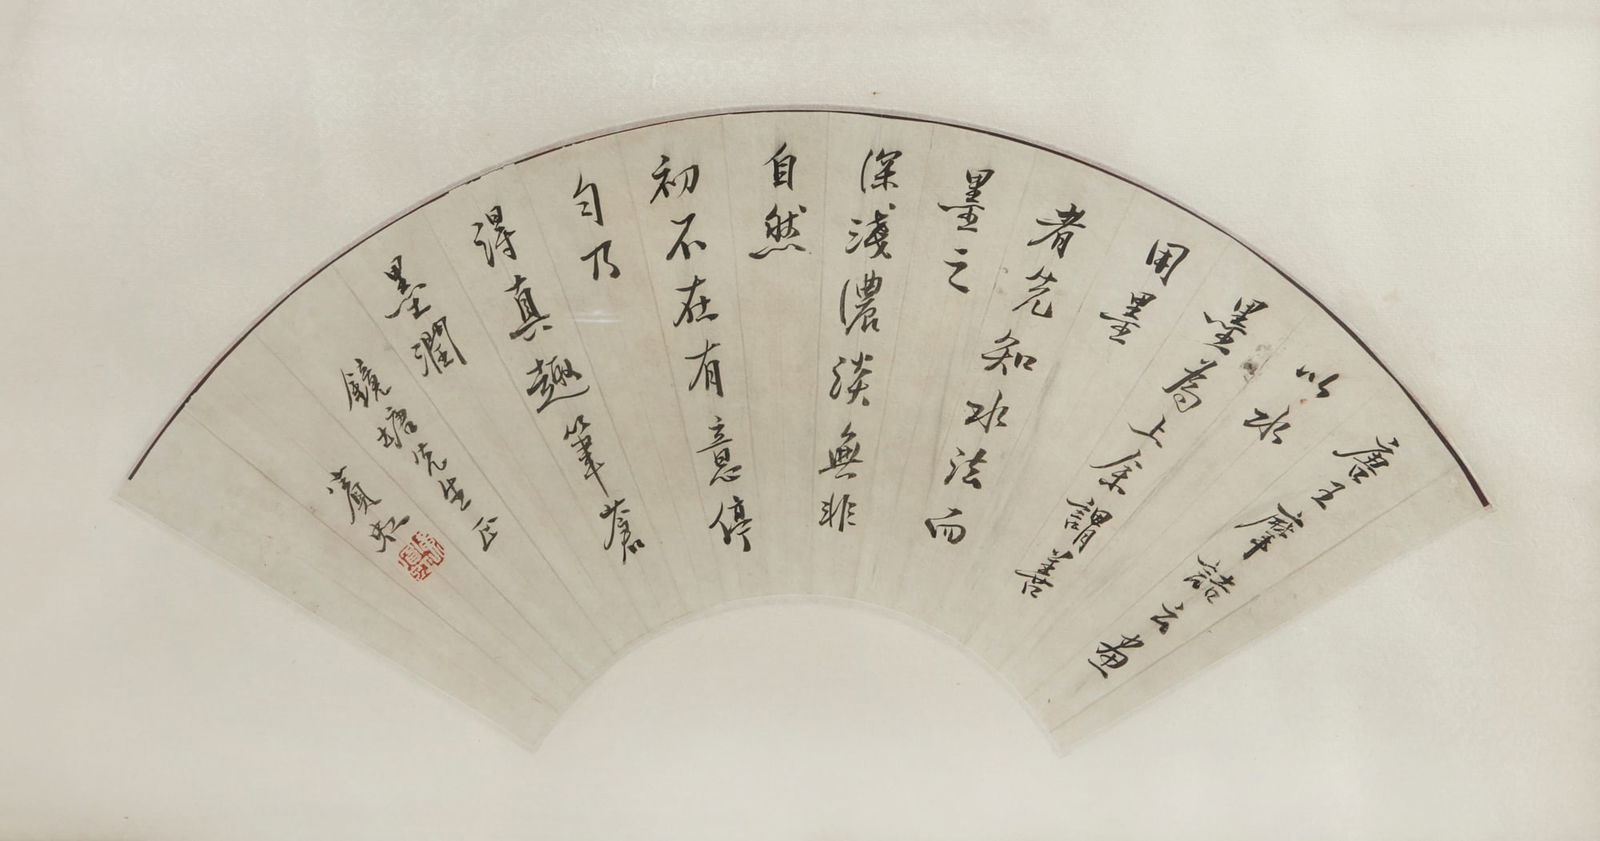 唐王摩詰云畫
以水
墨為上余謂善
用墨
者先知水法而
墨之
深淺濃淡無非
自然
初不在有意停
勻乃
得真趣筆蒼
墨潤
鏡塘先生正
賓虹